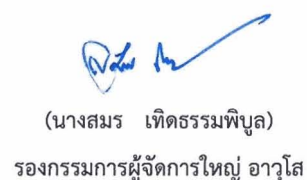 (นางสมร เทิดธรรมพิบูล)
รองกรรมการผู้จัดการใหญ่ อาวุโส